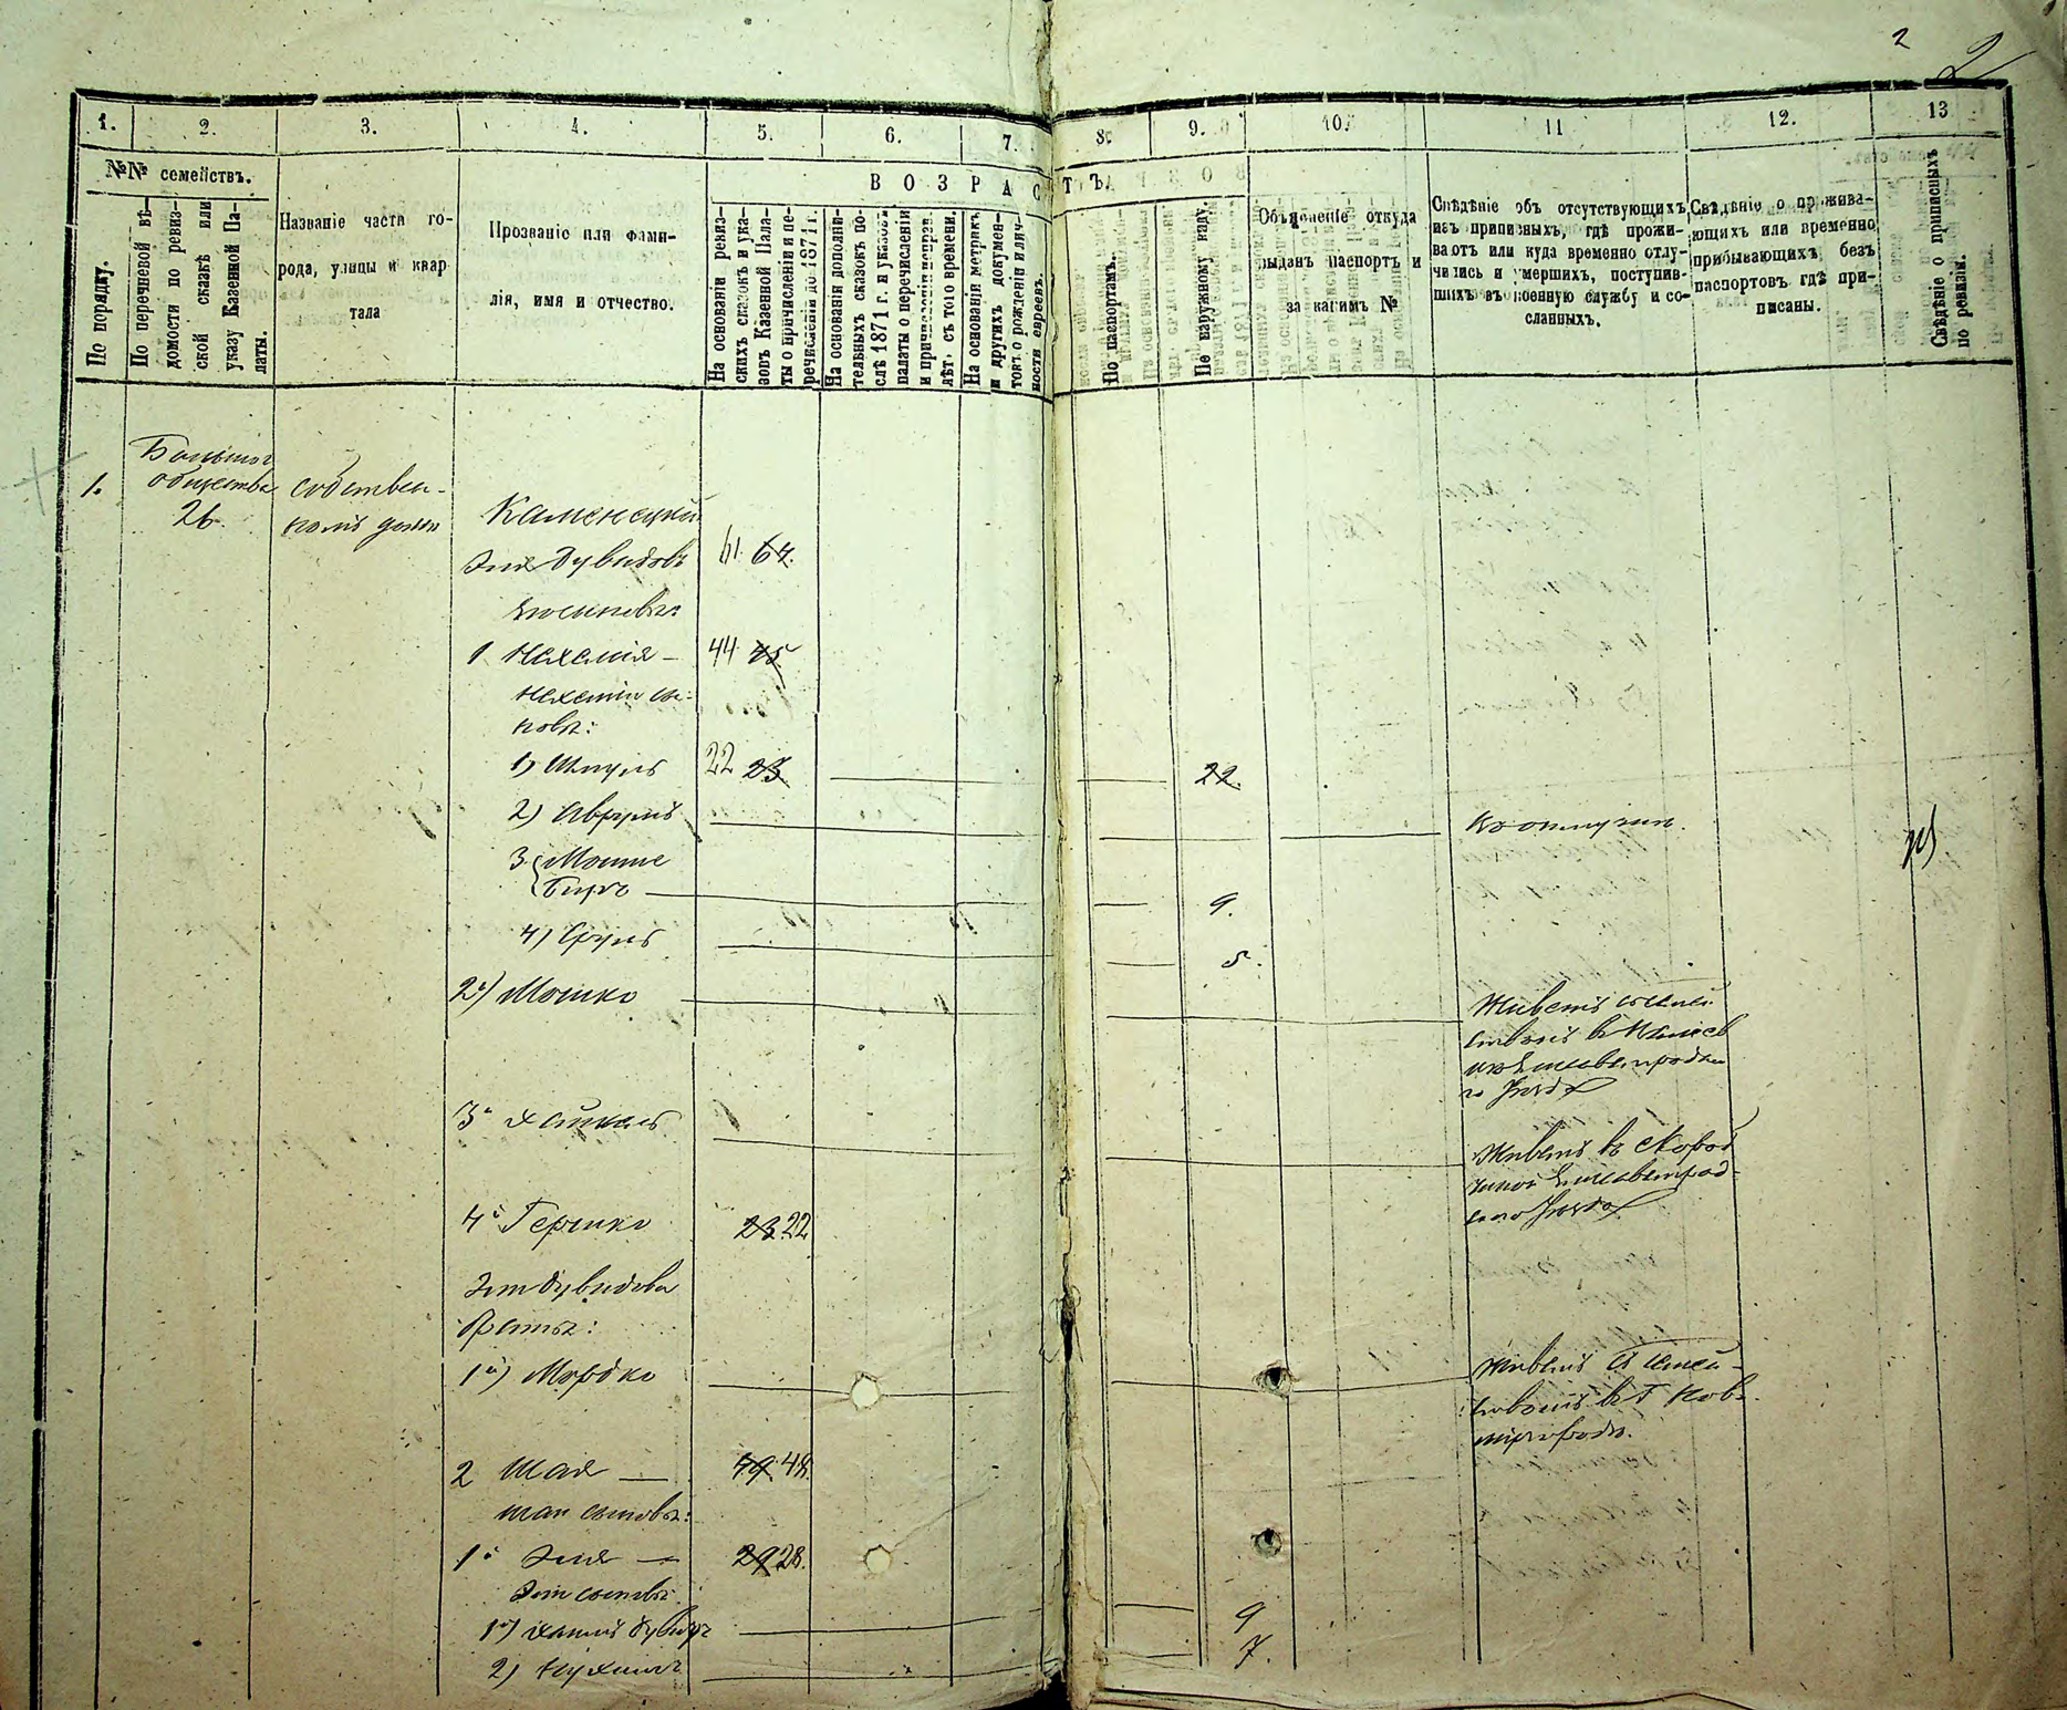 2
2
1.
2.
3.
4.
5.
6.
7.
8.
9.
10.
11
12.
13
№№ семействъ.
ВОЗРАСТЪ
По порядку.
По перечневой вѣ-
домости по ревиз-
ской сказкѣ или
указу Казенной Па-
латы.
Названіе части го-
рода, улицы и квар
тала
Прозваніе или фами-
лія, имя и отчество.
На основаніи ревиз-
скихъ сказокъ и ука-
зовъ Казенной Пала-
ты о причисленіи и пе-
речисленіи до 1871 г.
На основаніи дополни-
тельныхъ сказокъ по-
слѣ 1871 г. и указовъ
палаты о перечисленіи
и причисленіи неправ.
лѣт. съ того времени.
На основаніи метрикъ
и другихъ докумен-
товъ о рожденіи и лич-
ности евреевъ.
По паспортамъ.
По наружному виду.
Объясненіе откуда
выданъ паспортъ и
за какимъ №
Свѣдѣніе объ отсутствующихъ
изъ приписныхъ, гдѣ прожи-
ваютъ или куда временно отлу-
чились и умершихъ, поступив-
шихъ въ военную службу и со-
сланныхъ.
Свѣдѣніе о прожива-
ющихъ или временно
прибывающихъ безъ
паспортовъ гдѣ при-
писаны.
Свѣдѣніе о приписныхъ
по ревизіи.
1.
общества
26.
собствен-
номъ домѣ
Каменецкій
Эля Дувидовъ 61 64.
1 Нехемія — 44 45
Нехеміи сы-
новья:
1) Шмуль 22 23 22.
2) Аврумъ въ отлучкѣ.
3 Мошке
Беръ 9.
4) Сруль 5.
2й) Мошко
Живетъ съ семей-
ствомъ въ
го Уѣзда
3й Хаимъ
Живетъ въ
Елисаветград-
скаго Уѣзда
4й Гершко 23 22
Эли Дувидова
братья:
1й) Мордко
Живетъ съ семей-
ствомъ въ г. Ново-
миргородѣ.
2 Шая — 49 48.
Шаи сыновья:
1й Эля — 29 28.
Эли сыновья:
1й) Хаимъ Дувидъ 9
2) Нухимъ 7.